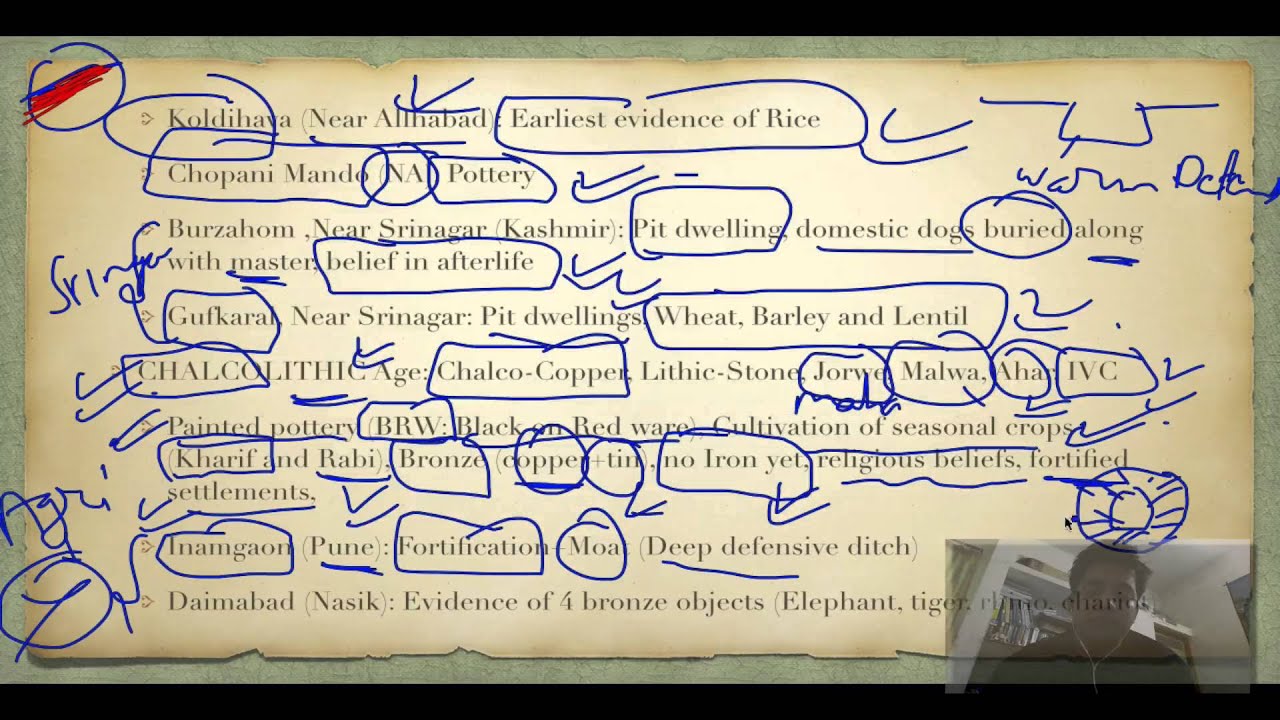 Koldihava (Near Allhabad): Earliest evidence of Rice
Chopani Mando (NA) Pottery
Burzahom ,Near Srinagar (Kashmir): Pit dwelling, domestic dogs buried along
with master, belief in afterlife
Gufkaral, Near Srinagar: Pit dwellings, Wheat, Barley and Lentil
CHALCOLITHIC Age: Chalco-Copper, Lithic-Stone, Jorwe, Malwa, Ahar, IVC
Painted pottery (BRW: Black on Red ware), Cultivation of seasonal crops
(Kharif and Rabi), Bronze (copper+tin), no Iron yet, religious beliefs, fortified
settlements,
Inamgaon (Pune): Fortification+Moat (Deep defensive ditch)
Daimabad (Nasik): Evidence of 4 bronze objects (Elephant, tiger, rhino, chariot)
Agri